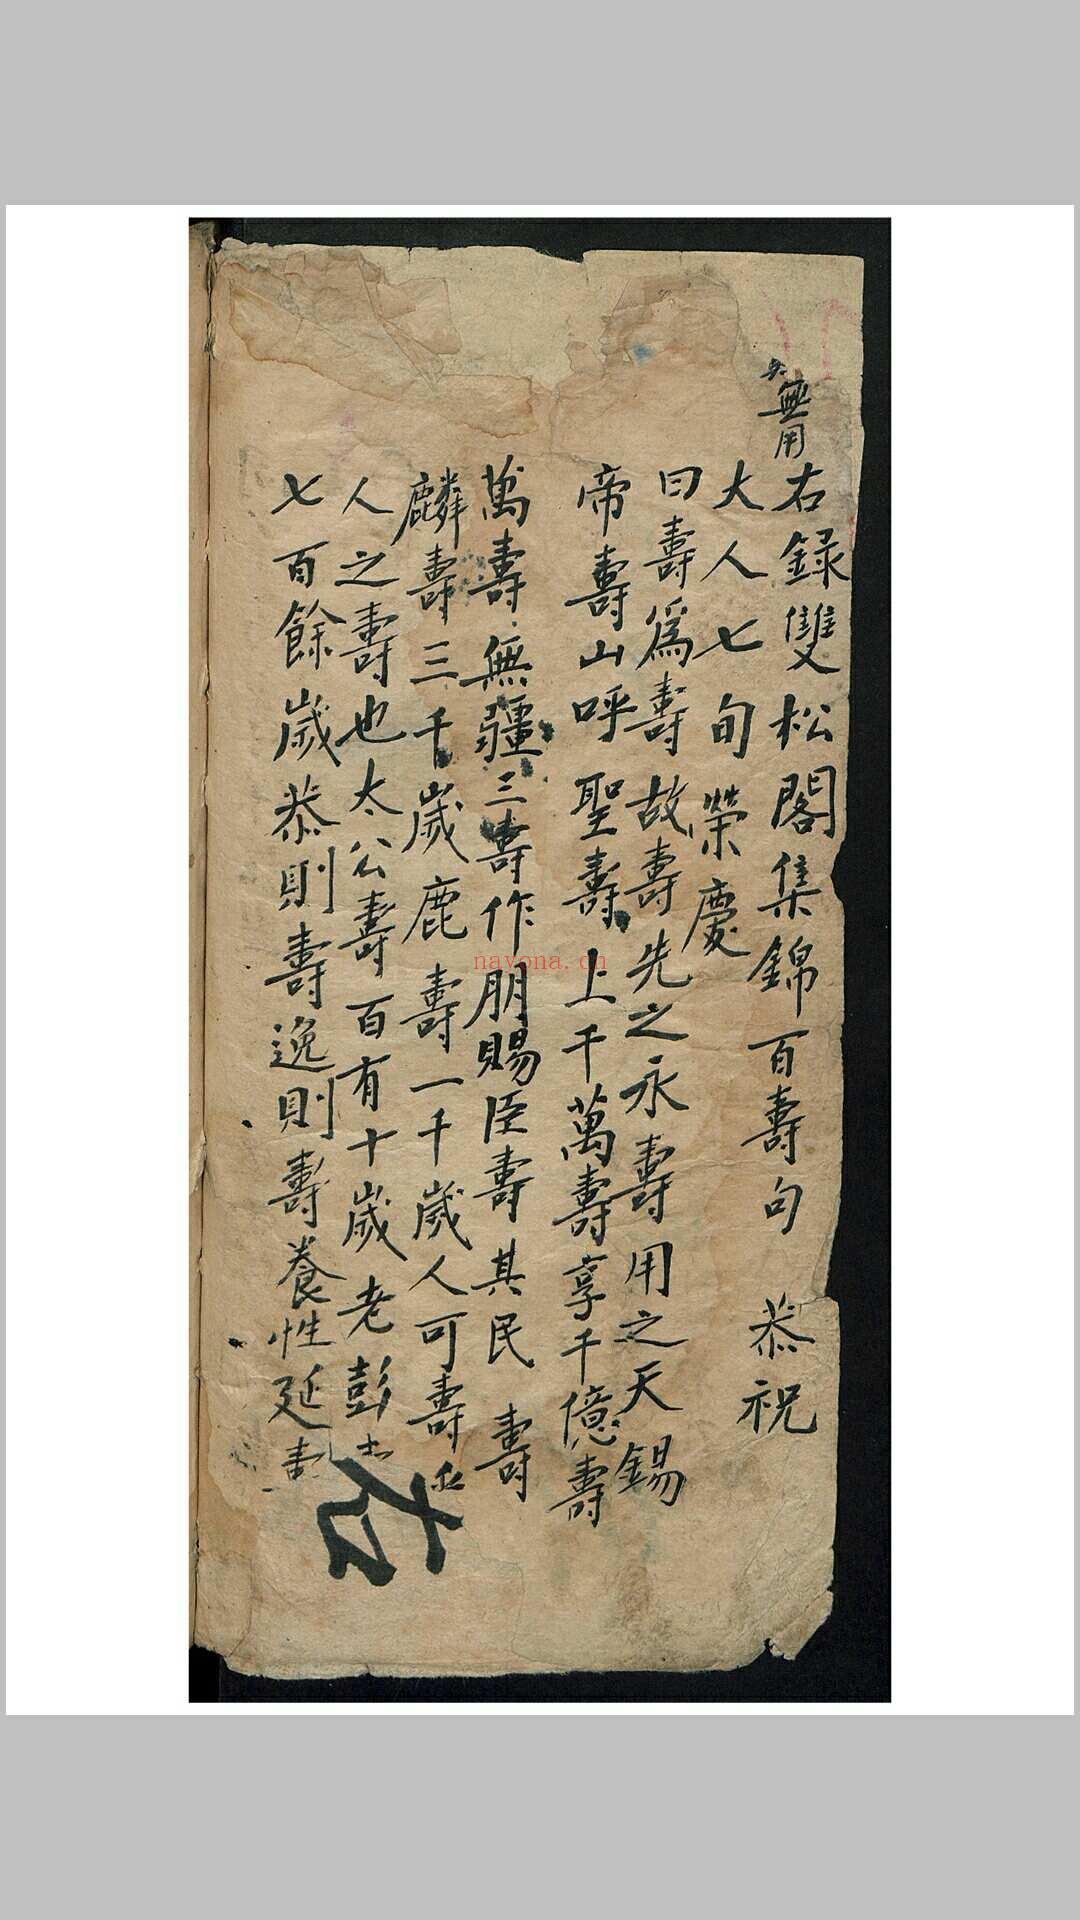 無用
右錄雙松閣集錦百壽句　恭祝
大人七旬榮慶
曰壽爲壽故壽先之永壽用之天錫
帝壽山呼聖壽上千萬壽享千億壽
萬壽無疆三壽作朋賜臣壽其民壽
麟壽三千歲鹿壽一千歲人可壽
人之壽也太公壽百有十歲老彭
七百餘歲恭則壽逸則壽養性延壽
nayona.cn